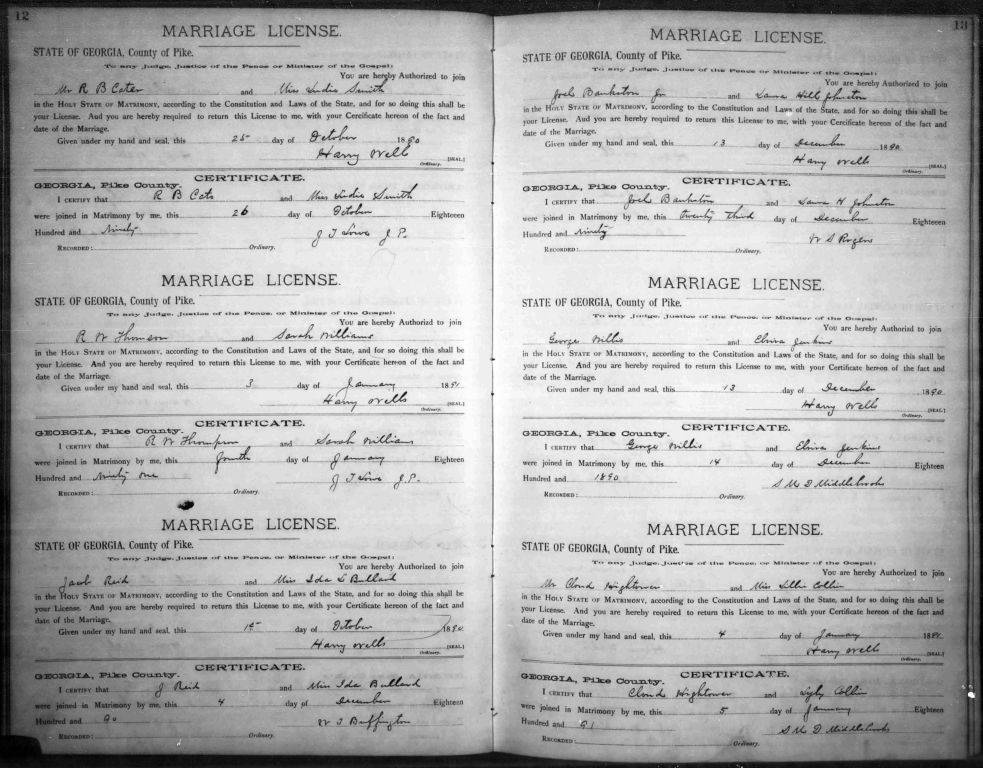 12
MARRIAGE LICENSE.
STATE OF GEORGIA, County of Pike.
To any Judge, Justice of the Peace or Minister of the Gospel:
You are hereby Authorized to join
Mr R B Cates and Miss Ludie Smith
in the HOLY STATE OF MATRIMONY, according to the Constitution and Laws of the State, and for so doing this shall be
your License. And you are hereby required to return this License to me, with your Cercificate hereon of the fact and
date of the Marriage.
Given under my hand and seal, this 25 day of October 1890
Harry Wells [SEAL]
Ordinary.
CERTIFICATE.
GEORGIA, Pike County.
I CERTIFY that R B Cats and Miss Ludie Smith
were joined in Matrimony by me, this 26 day of October Eighteen
Hundred and Ninety J T Lowe J.P.
RECORDED: Ordinary.
MARRIAGE LICENSE.
STATE OF GEORGIA, County of Pike.
To any Judge, Justice of the Peace or Minister of the Gospel:
You are hereby Authorized to join
R W Thomson and Sarah Williams
in the HOLY STATE OF MATRIMONY, according to the Constitution and Laws of the State, and for so doing this shall be
your License. And you are hereby required to return this License to me, with your Cercificate hereof of the fact and
date of the Marriage.
Given under my hand and seal, this 3 day of January 1891
Harry Wells [SEAL]
Ordinary.
CERTIFICATE.
GEORGIA, Pike County.
I CERTIFY that R W Thompson and Sarah William
were joined in Matrimony by me, this fourth day of January Eighteen
Hundred and Ninety one J T Lowe J.P.
RECORDED: Ordinary.
MARRIAGE LICENSE.
STATE OF GEORGIA, County of Pike.
To any Judge, Justice of the Peace, or Minister of the Gospel:
You are hereby Authorized to join
Jacob Reid and Miss Ida L Bullard
in the HOLY STATE OF MATRIMONY, according to the Constitution and Laws of the State, and for so doing this shall be
your License. And you are hereby required to return this License to me, with your Certificate hereon of the fact and
date of the Marriage.
Given under my hand and seal, this 15 day of October 1890
Harry Wells [SEAL]
Ordinary.
CERTIFICATE.
GEORGIA, Pike County.
I CERTIFY that J Reid and Miss Ida Bullard
were joined in Matrimony by me, this 4 day of December Eighteen
Hundred and 90 W T Buffington
RECORDED: Ordinary.
13
MARRIAGE LICENSE.
STATE OF GEORGIA, County of Pike.
To any Judge, Justice of the Peace or Minister of the Gospel:
You are hereby Authorized to join
Joel Bankston Jr and Hill Johnston
in the HOLY STATE OF MATRIMONY, according to the Constitution and Laws of the State, and for so doing this shall be
your License. And you are hereby required to return this License to me, with your Cercificate hereon of the fact and
date of the Marriage.
Given under my hand and seal, this 13 day of December 1890
Harry Wells [SEAL]
Ordinary.
CERTIFICATE.
GEORGIA, Pike County.
I CERTIFY that Joel Bankston and H Johnston
were joined in Matrimony by me, this twenty third day of December Eighteen
Hundred and Ninety W S Rogers
RECORDED: Ordinary.
MARRIAGE LICENSE.
STATE OF GEORGIA, County of Pike.
To any Judge, Justice of the Peace or Minister of the Gospel:
You are hereby Authorized to join
George Willis and Elvira Jenkins
in the HOLY STATE OF MATRIMONY, according to the Constitution and Laws of the State, and for so doing this shall be
your License. And you are hereby required to return this License to me, with your Cercificate hereof of the fact and
date of the Marriage.
Given under my hand and seal, this 13 day of December 1890
Harry Wells [SEAL]
Ordinary.
CERTIFICATE.
GEORGIA, Pike County.
I CERTIFY that George Willis and Elvira Jenkins
were joined in Matrimony by me, this 14 day of December Eighteen
Hundred and 1890 S M D Middlebrooks
RECORDED: Ordinary.
MARRIAGE LICENSE.
STATE OF GEORGIA, County of Pike.
To any Judge, Justice of the Peace or Minister of the Gospel:
You are hereby Authorized to join
Mr Cloud Hightower and Miss Lillie Collier
in the HOLY STATE OF MATRIMONY, according to the Constitution and Laws of the State, and for so doing this shall be
your License. And you are hereby required to return this License to me, with your Certificate hereon of the fact and
date of the Marriage.
Given under my hand and seal, this 4 day of January 1891
Harry Wells [SEAL]
Ordinary.
CERTIFICATE.
GEORGIA, Pike County.
I CERTIFY that Cloud Hightower and Collier
were joined in Matrimony by me, this 5 day of January Eighteen
Hundred and 91 S M D Middlebrooks
RECORDED: Ordinary.